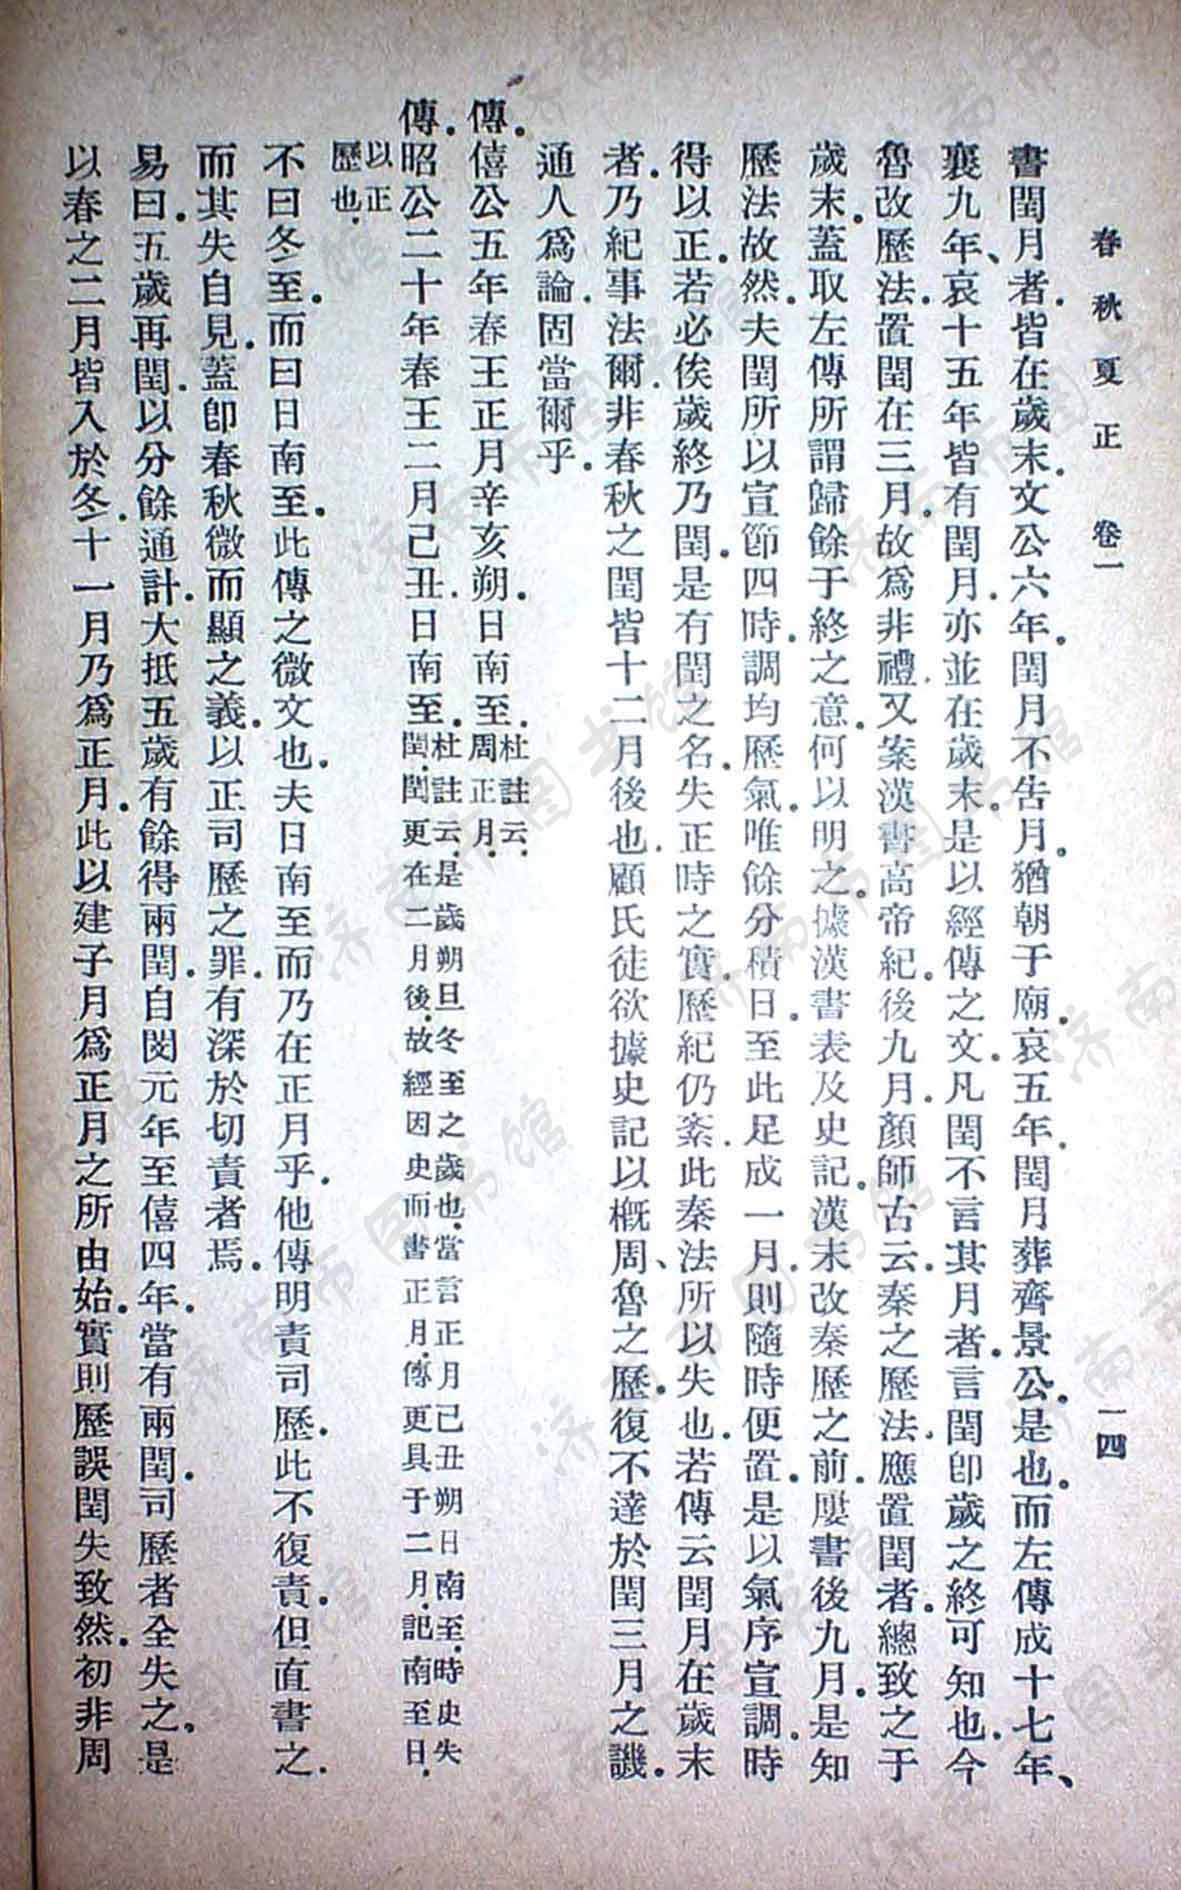 春秋夏正　卷一　一四
書閏月者．皆在歲末．文公六年．閏月不告月．猶朝于廟．哀五年．閏月葬齊景公．是也．而左傳成十七年、
襄九年、哀十五年皆有閏月．亦並在歲末．是以經傳之文．凡閏不言其月者．言閏卽歲之終可知也．今
魯改歷法．置閏在三月．故爲非禮．又案漢書高帝紀．後九月．顏師古云．秦之歷法．應置閏者．總致之于
歲末．蓋取左傳所謂歸餘于終之意．何以明之．據漢書表及史記．漢未改秦歷之前．屢書後九月．是知
歷法故然．夫閏所以宣節四時．調均歷氣．唯餘分積日．至此足成一月．則隨時便置．是以氣序宣調．時
得以正．若必俟歲終乃閏．是有閏之名．失正時之實．歷紀仍紊．此秦法所以失也．若傳云閏月在歲末
者．乃紀事法爾．非春秋之閏皆十二月後也．顧氏徒欲據史記以槪周、魯之歷．復不達於閏三月之譏．
通人爲論．固當爾乎．
傳．僖公五年春王正月辛亥朔．日南至．杜註云．周正月．
傳．昭公二十年春王二月己丑．日南至．杜註云．是歲朔旦冬至之歲也．當言正月己丑朔日南至．時史失
閏．閏更在二月後．故經因史而書正月．傳更具于二月．記南至日．
以正
歷也．
不曰冬至．而曰日南至．此傳之微文也．夫日南至而乃在正月乎．他傳明責司歷．此不復責．但直書之．
而其失自見．蓋卽春秋微而顯之義．以正司歷之罪．有深於切責者焉．
易曰．五歲再閏．以分餘通計．大抵五歲有餘得兩閏．自閔元年至僖四年．當有兩閏．司歷者全失之．是
以春之二月皆入於冬．十一月乃爲正月．此以建子月爲正月之所由始．實則歷誤閏失致然．初非周
济南市图书馆